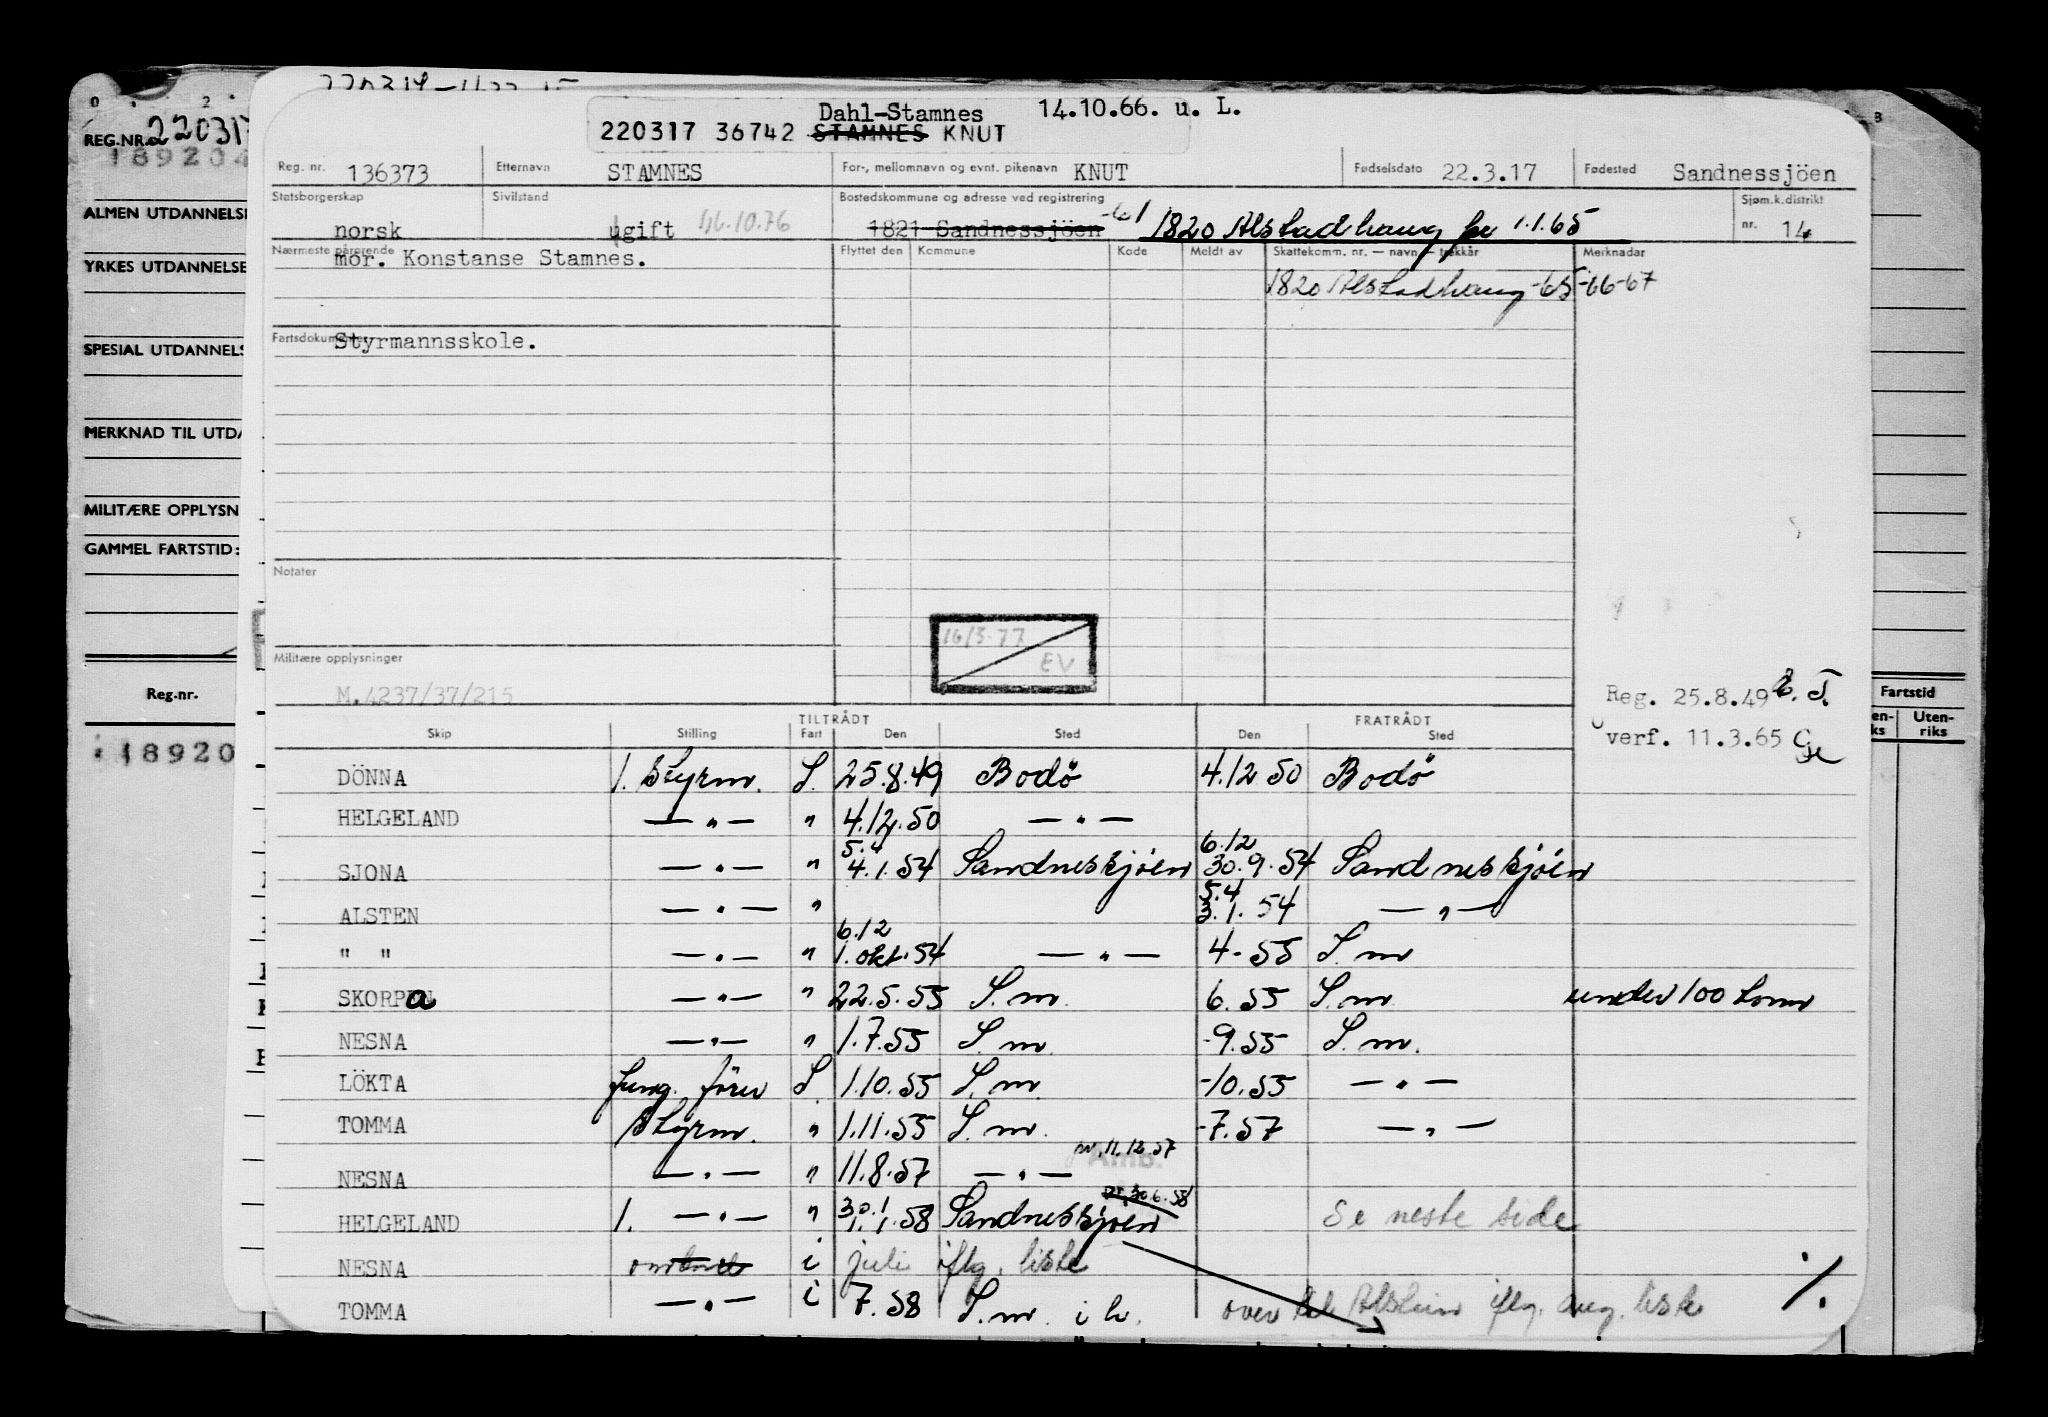 Dahl-Stamnes 14.10.66. u. L.
220317 36742 STAMNES KNUT
REG.NR. 220317
Reg. nr. 136373 Etternavn STAMNES For-, mellomnavn og evnt. pikenavn KNUT Fødselsdato 22.3.17 Fødested Sandnessjöen
Statsborgerskap norsk Sivilstand ugift 16.10.76 Bostedskommune og adresse ved registrering 1821 Sandnessjöen -61 1820 Alstadhaug pr 1.1.65 Sjøm.k.distrikt nr. 14
ALMEN UTDANNELSE
Nærmeste pårørende mor. Konstanse Stamnes. Flyttet den Kommune Kode Meldt av Skattekomm. nr. — navn — trekkår Merknader
YRKES UTDANNELSE
1820 Alstadhaug -65-66-67
Fartsdokumenter Styrmannsskole.
SPESIAL UTDANNELS
MERKNAD TIL UTDA
MILITÆRE OPPLYSN
GAMMEL FARTSTID:
Notater
16/3-77
EV
Militære opplysninger
M.4237/37/215
Reg.nr.
Reg. 25.8.49 Fartstid
verf. 11.3.65
Uten-
riks
18920
TILTRÅDT FRATRÅDT
Skip Stilling Fart Den Sted Den Sted
DÖNNA 1. Styrm. S. 25.8.49 Bodö 4.12 50 Bodö
HELGELAND — " — " 4.12.50 — " —
SJONA — " — " 5.4 4.1.54 Sandneskjöen 6.12 30.9.54 Sandneskjöen
ALSTEN — " — " 5.4 3.1.54 — " —
" " — " — " 6.12 1.okt.54 — " — 4-55 S.m
SKORPA — " — " 22.5.55 S.m. 6.55 S.m. under 100 tonn
NESNA — " — " 1.7.55 S.m. -9.55 S.m.
LÖKTA fung. förer S. 1.10.55 S.m. -10.55 — " —
TOMMA Styrm. " 1.11.55 S.m. -7.57 — " —
NESNA — " — " 11.8.57 — " — 11.12.57
Amb.
HELGELAND 1. — " — " 30.1 1.1.58 Sandneskjöen 30.6.58 Se neste side
NESNA i juli iflg. liste
TOMMA — " — i 7.58 S.m. i h. over til Alstein iflg. aug. liste %